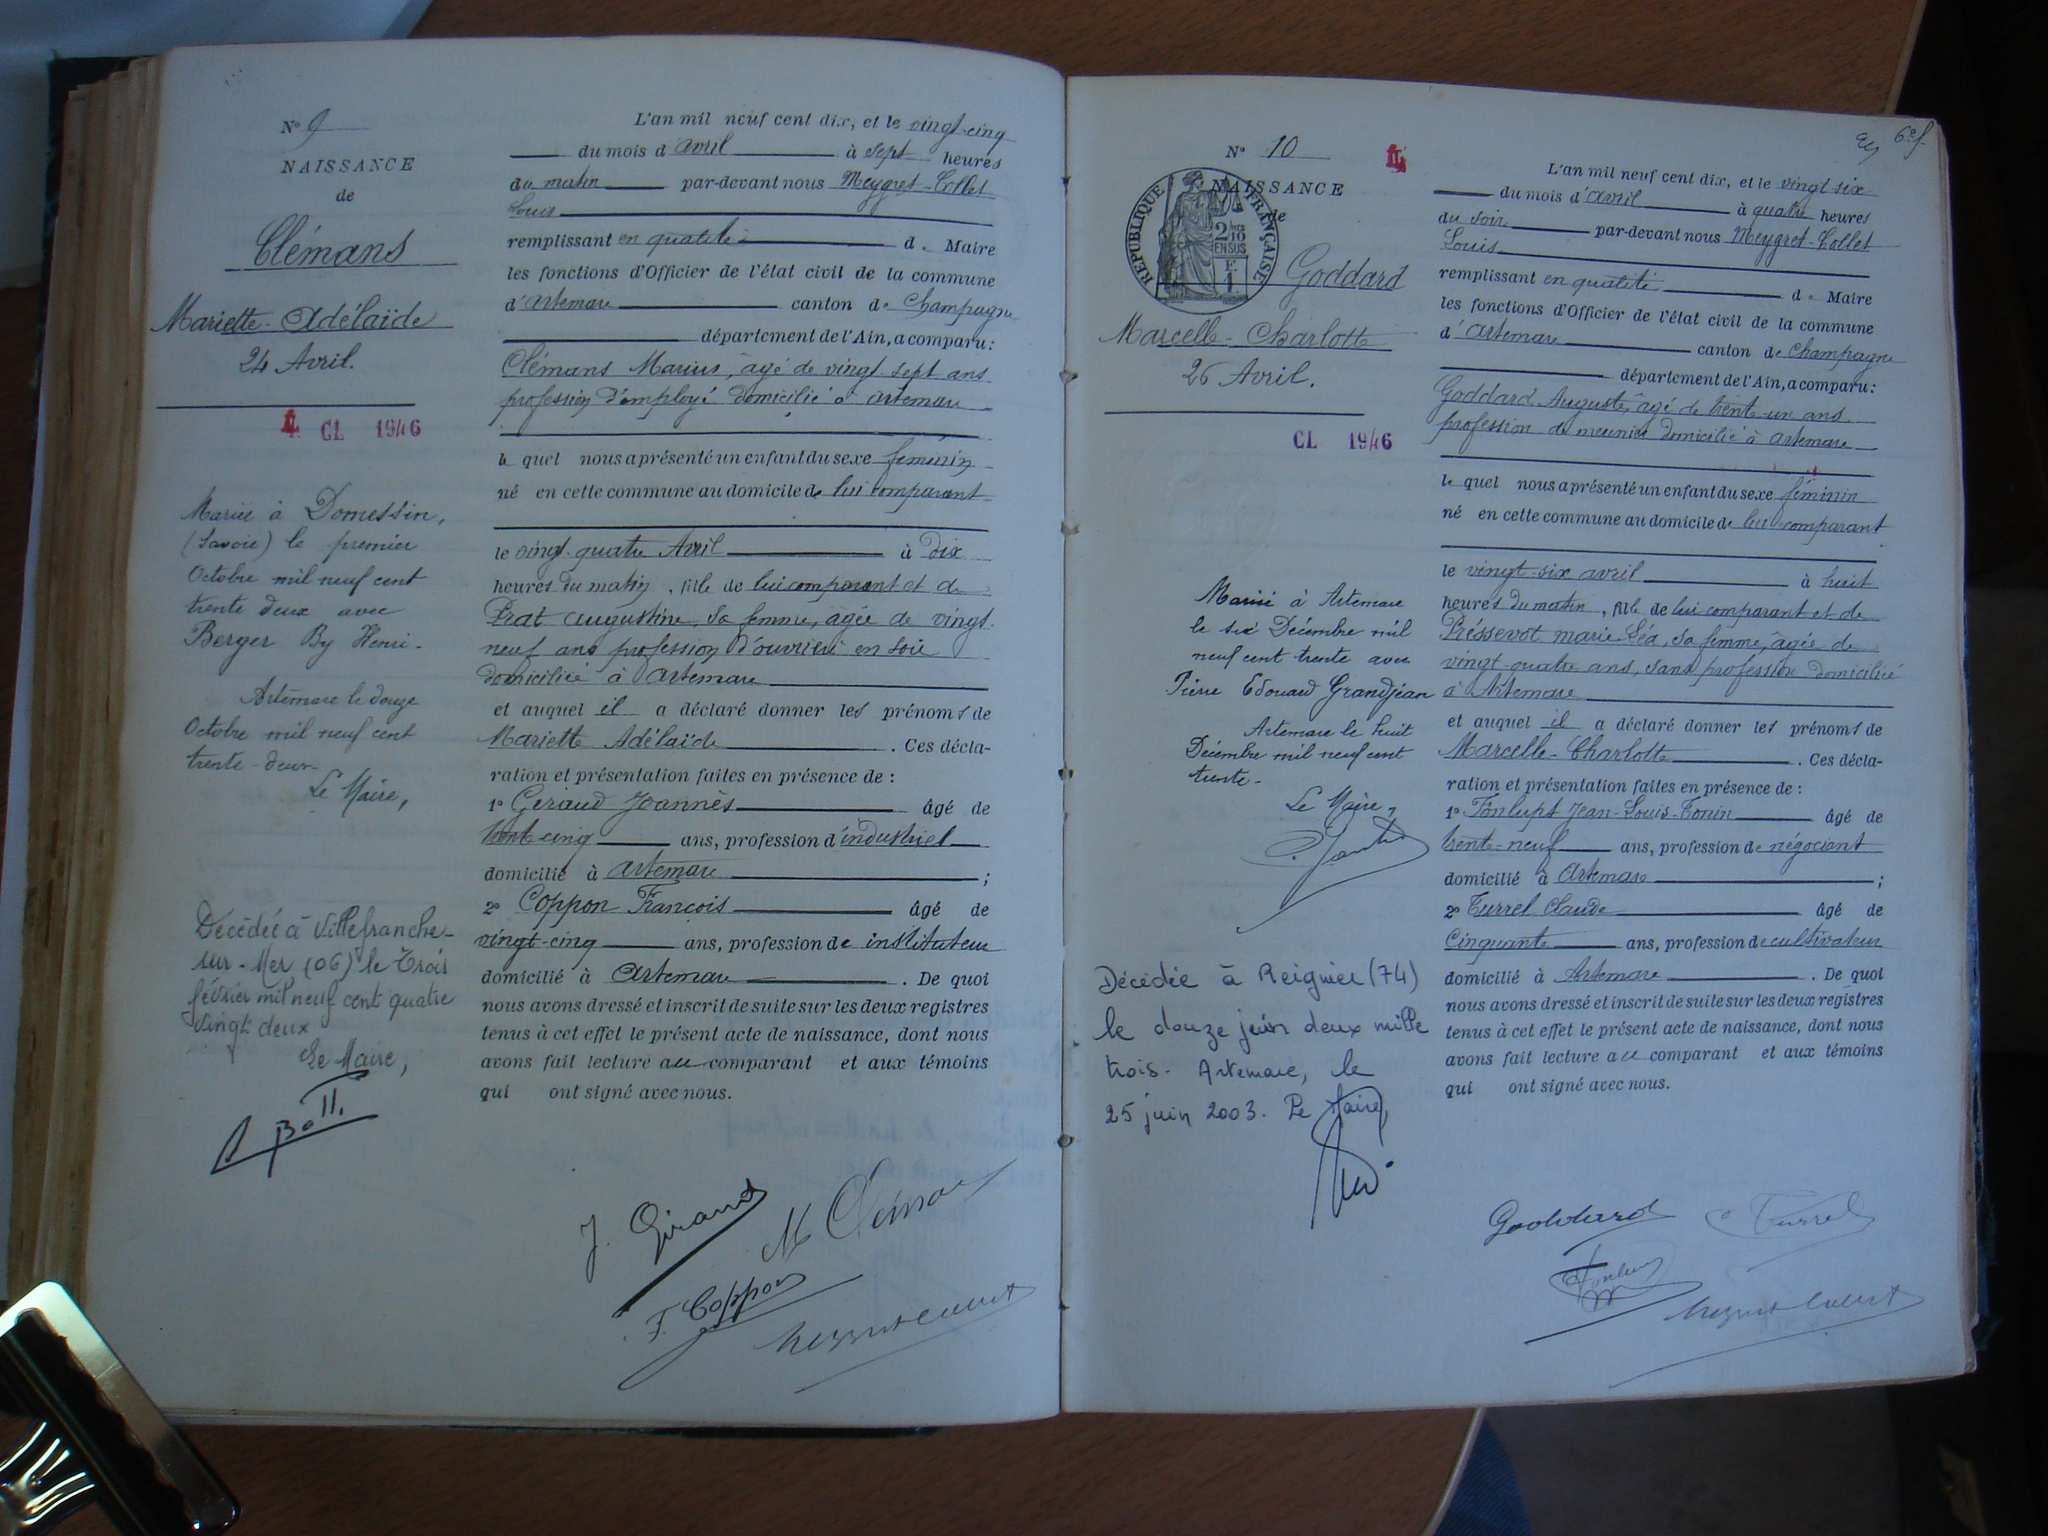 N° 9
NAISSANCE
de
Clémans
Mariette-Adélaïde
24 Avril.
CL 1946
Mariée à Domessin,
(Savoie) le premier
Octobre mil neuf cent
trente deux avec
Berger By Henri-
Artemare le douze
Octobre mil neuf cent
trente-deux
Le Maire,
Décédée à Villefranche-
sur-Mer (06) le Trois
février mil neuf cent quatre
vingt deux
Le Maire,
L'an mil neuf cent dix, et le vingt-cinq
du mois d'avril à sept heures
du matin par-devant nous Meygret-Collet
Louis
remplissant en qualité de Maire
les fonctions d'Officier de l'état civil de la commune
d'Artemare canton de Champagne
département de l'Ain, a comparu:
Clémans Marius, âgé de vingt sept ans
profession d'employé domicilié à Artemare
le quel nous a présenté un enfant du sexe féminin
né en cette commune au domicile de lui comparant
le vingt-quatre Avril à dix
heures du matin, fille de lui comparant et de
Prat Augustine, sa femme, âgée de vingt-
neuf ans profession d'ouvrière en soie
domiciliée à Artemare
et auquel il a déclaré donner les prénoms de
Mariette Adélaïde. Ces décla-
ration et présentation faites en présence de :
1° Geraud Joannès âgé de
trente cinq ans, profession d'industriel
domicilié à Artemare ;
2° Coppon François âgé de
vingt-cinq ans, profession de instituteur
domicilié à Artemare. De quoi
nous avons dressé et inscrit de suite sur les deux registres
tenus à cet effet le présent acte de naissance, dont nous
avons fait lecture au comparant et aux témoins
qui ont signé avec nous.
J. Giraud
M Clémans
F. Coppon
Meygret Collet
6e f.
N° 10
NAISSANCE
de
RÉPUBLIQUE FRANÇAISE
2/10
EN SUS
Goddard
Marcelle-Charlotte
26 Avril.
CL 1946
Mariée à Artemare
le six Décembre mil
neuf cent trente avec
Pierre Edouard Grandjean
Artemare le huit
Décembre mil neuf cent
trente-
Le Maire,
Décédée à Reignier (74)
le douze juin deux mille
trois. Artemare, le
25 juin 2003. Le Maire,
L'an mil neuf cent dix, et le vingt six
du mois d'avril à quatre heures
du soir par-devant nous Meygret-Collet
Louis
remplissant en qualité de Maire
les fonctions d'Officier de l'état civil de la commune
d'Artemare canton de Champagne
département de l'Ain, a comparu:
Goddard Auguste, âgé de trente-un ans
profession de meunier domicilié à Artemare
le quel nous a présenté un enfant du sexe féminin
né en cette commune au domicile de lui comparant
le vingt-six avril à huit
heures du matin, fille de lui comparant et de
Préssevot Marie-Léa, sa femme, âgée de
vingt-quatre ans, sans profession domiciliée
à Artemare
et auquel il a déclaré donner les prénoms de
Marcelle-Charlotte. Ces décla-
ration et présentation faites en présence de :
1° Fonlupt Jean-Louis-Tonin âgé de
trente-neuf ans, profession de négociant
domicilié à Artemare ;
2° Turrel Claude âgé de
Cinquante ans, profession de cultivateur
domicilié à Artemare. De quoi
nous avons dressé et inscrit de suite sur les deux registres
tenus à cet effet le présent acte de naissance, dont nous
avons fait lecture au comparant et aux témoins
qui ont signé avec nous.
Goddard
C Turrel
Fonlupt
Meygret Collet